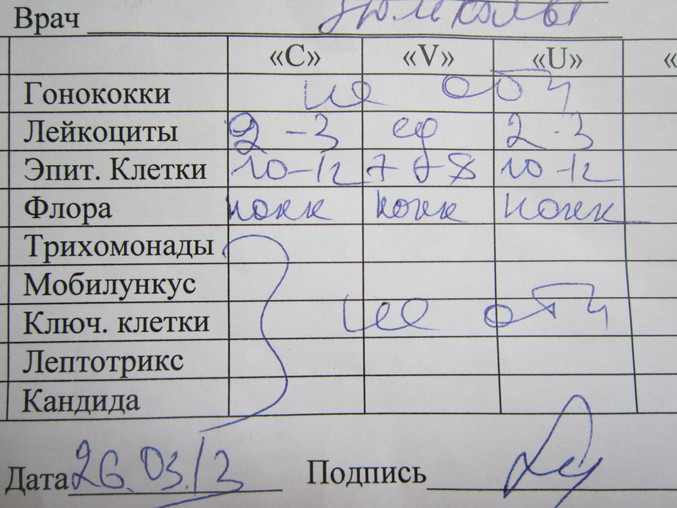 Врач
«C» «V» «U» «
Гонококки не обн
Лейкоциты 2-3 ед 2-3
Эпит. Клетки 10-12 7-8 10-12
Флора кокк кокк кокк
Трихомонады
Мобилункус
Ключ. клетки не обн
Лептотрикс
Кандида
Дата 26.03.13 Подпись